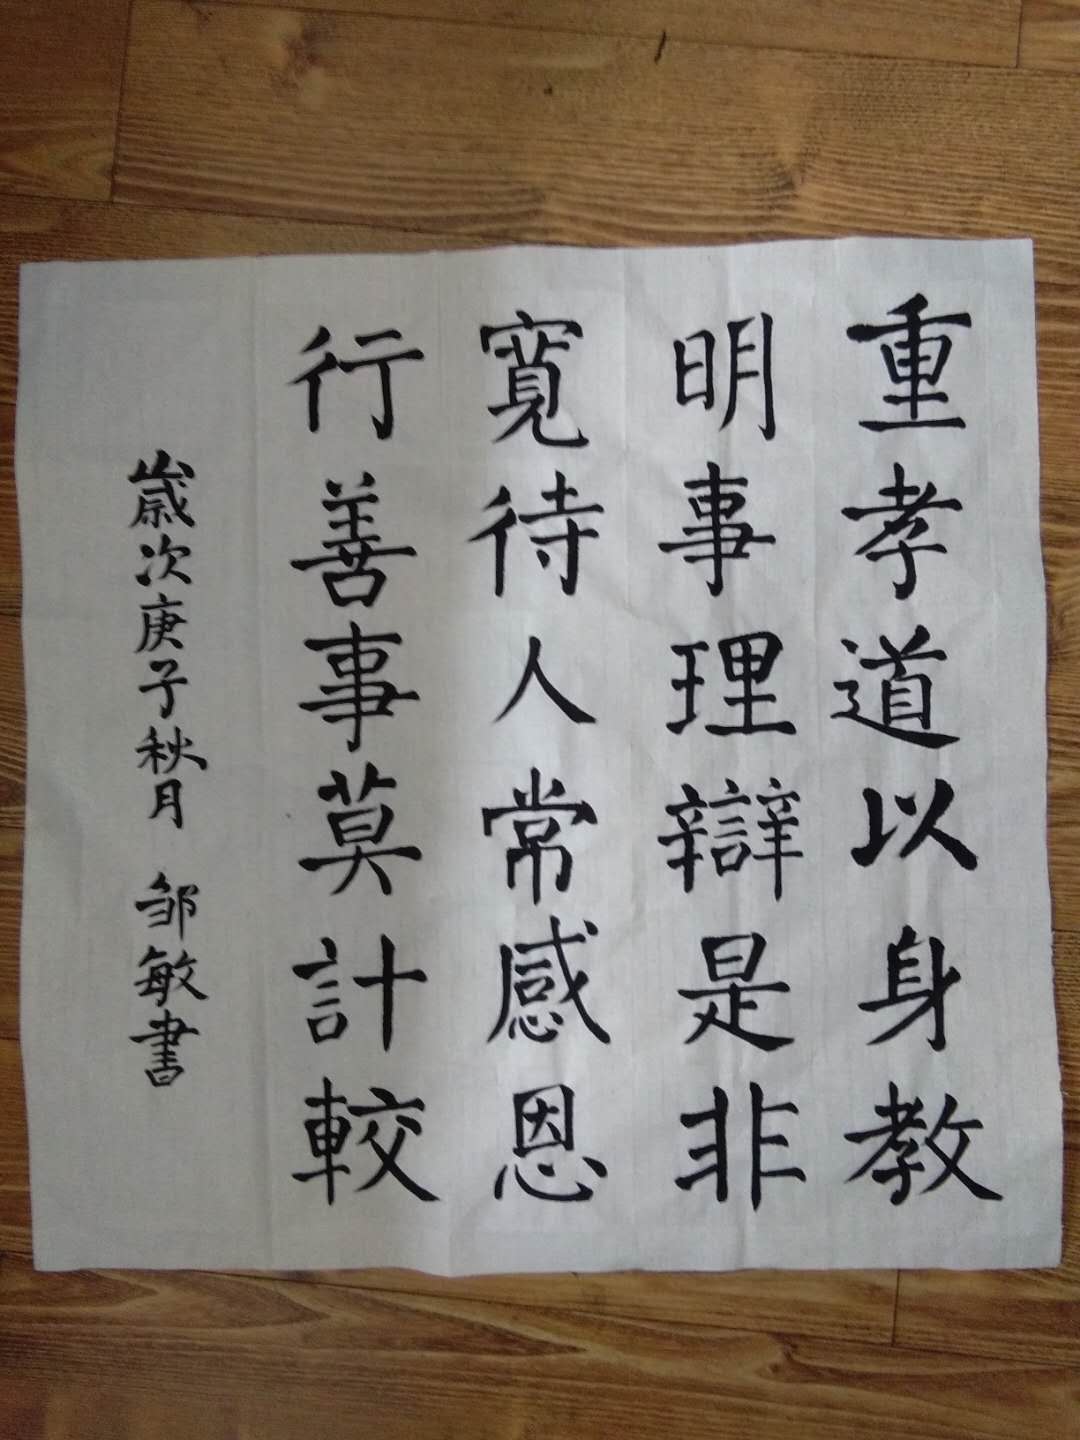 重孝道以身教
明事理辯是非
寬待人常感恩
行善事莫計較
歲次庚子秋月 邹敏書